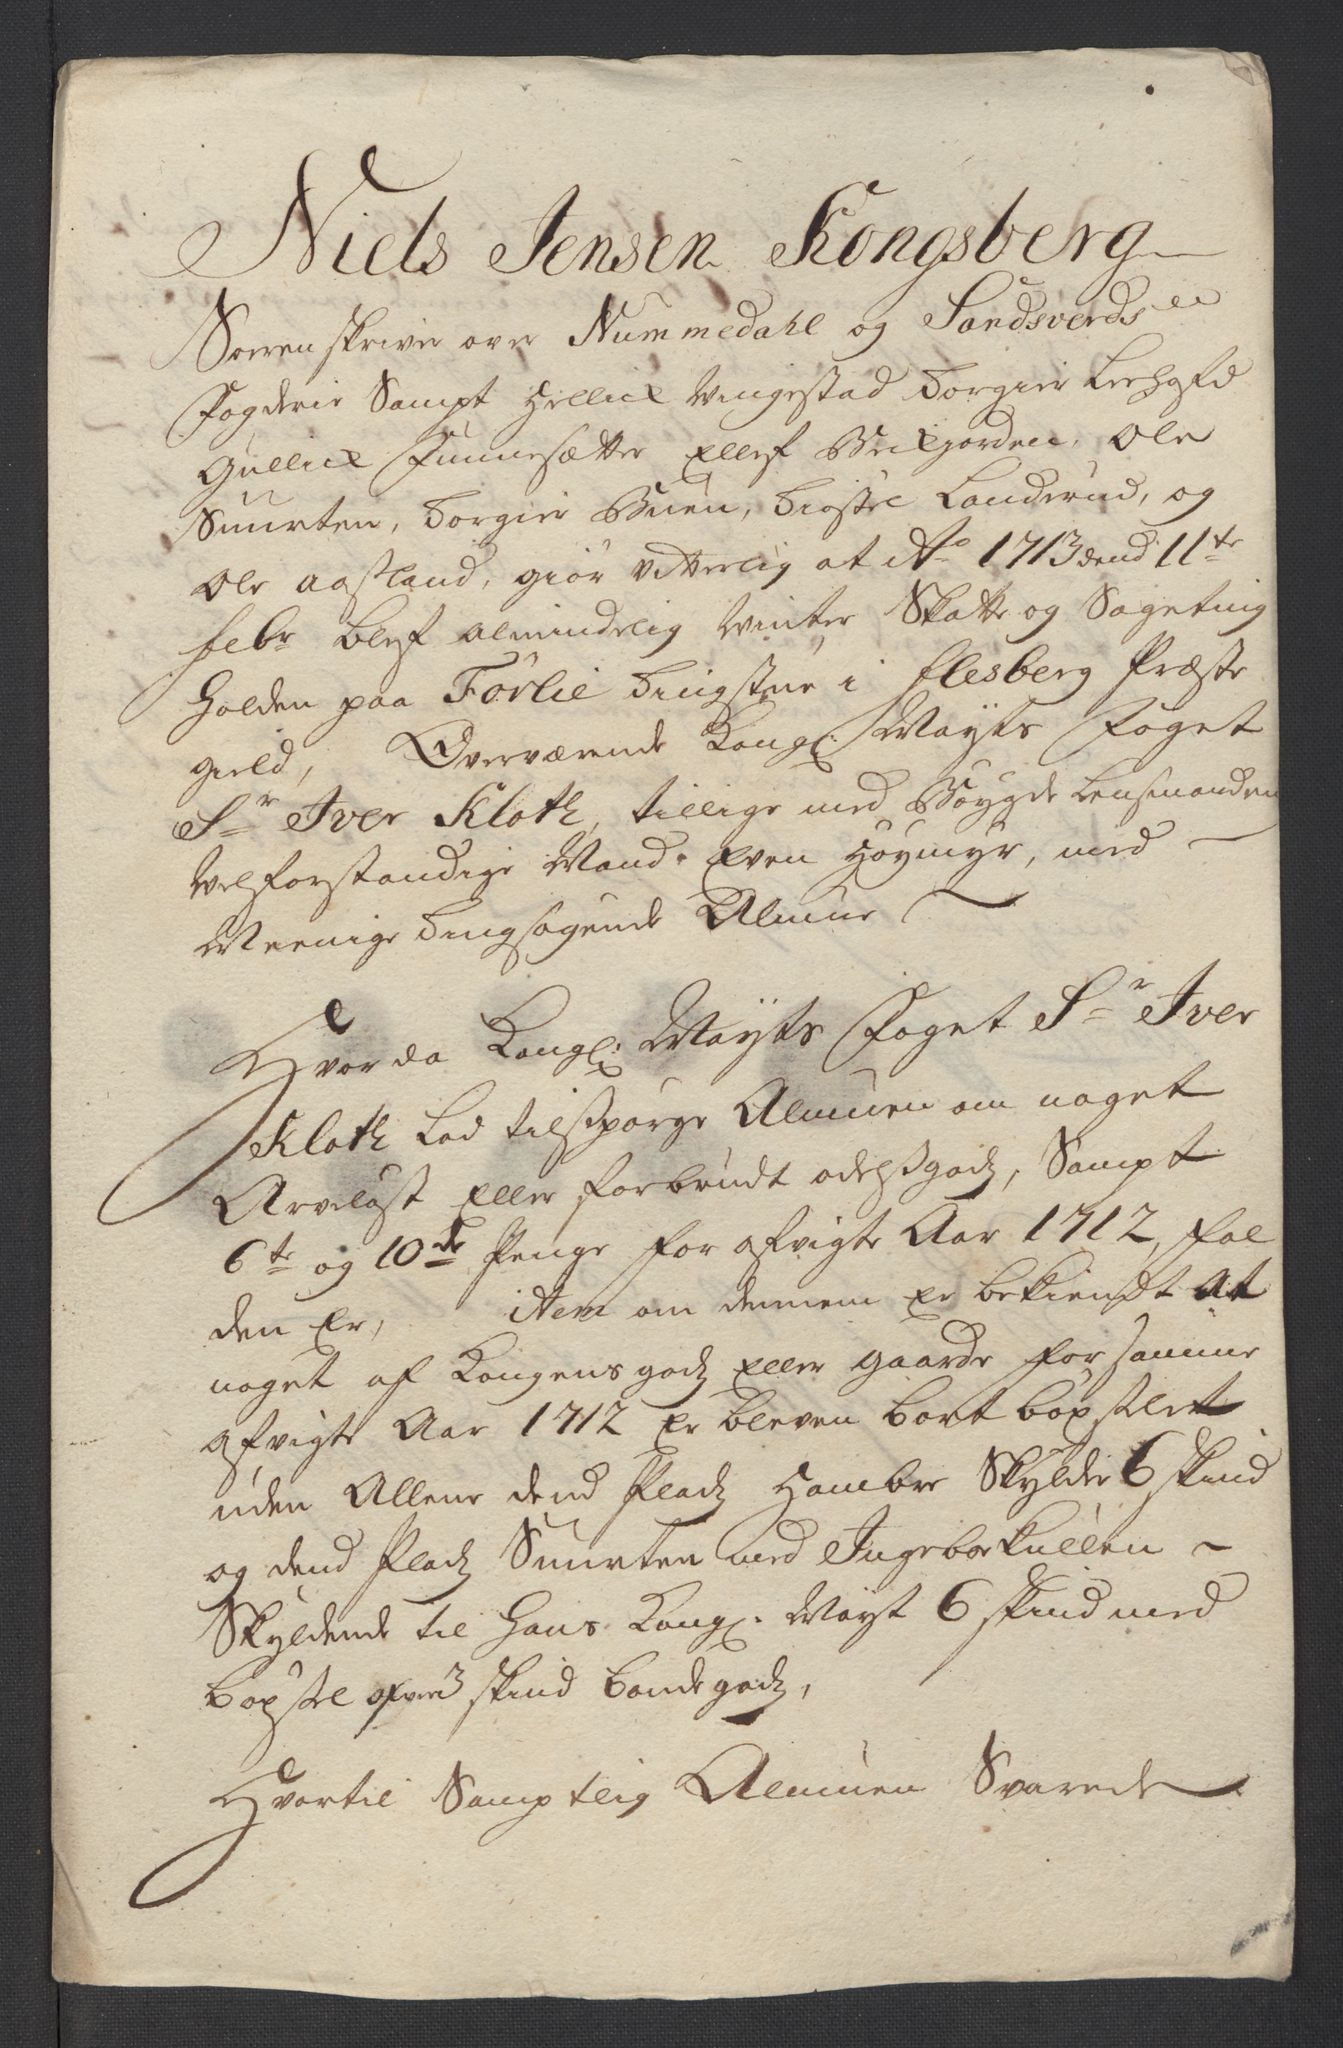 Niels Jensen Kongsberg
Soerenskriver over Nummedahl og Sandsverds
Fogderie Sampt Hellich Vingestad Torgier
Gullich Funnesætter Ellef Bechjorden, Ole
Snurten, Torgier Buen, Tioстel Landerud, og
Ole Aasland, giör Vitterlig at Ao 1713 dend 11te
febr blef almindelig Vinter Skatte og Sageting
holden paa Förlie tingstue i flesberg Præste
gield, Overværende Kongl: Mayts Foget
Sr Iver Kloth, tillige med Böygde Lensmanden
Velforstandige Mand Even Höymyr, med
Meenige tingsøgende Almue
Hvor da Kongl: Mayts Foget Sr Iver
Kloth Lod tilspørge Almuen om noget
Arveløst Eller forbrudt odelsgods, Sampt
6te og 10de Penge for afvigte Aar 1712, fal
den Er, item om dennem Er bekiendt At
noget af Kongens gods Eller gaarde for samme
afvigte Aar 1712 Er bleven bort bøxslet
uden Allene dend Plads Hambre Skylder 6 skind
og dend Plads Snurten med Ingeborkullen
Skyldende til Hans Kongl. Mayst 6 skind med
bøxsel ofver 3 skind bondegods,
Hvortil Samptlig Almuen Svarede